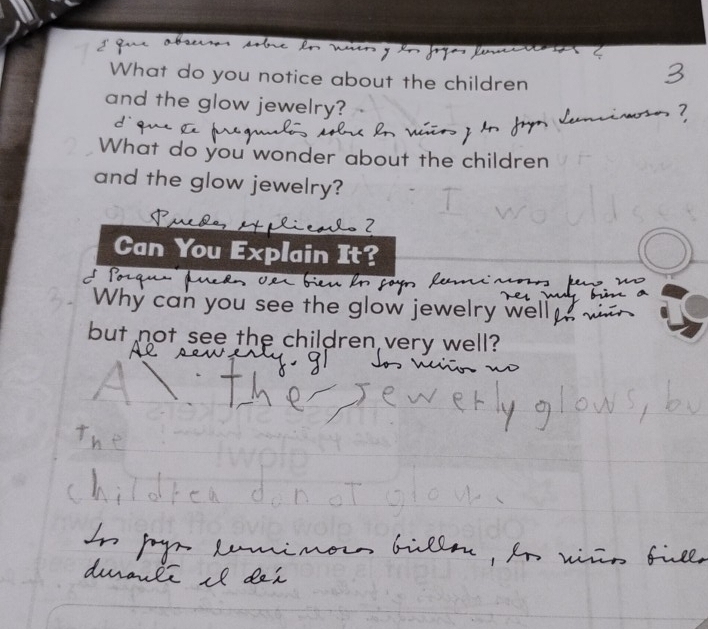 ¿ que observas sobre los niños y los joyas luminosas ?
What do you notice about the children
3
and the glow jewelry?
d' que te preguntas sobre los niños y los joyas Luminosas ?
What do you wonder about the children
and the glow jewelry?
I would see
Puedes explicarlo ?
Can You Explain It?
¿ Porque puedes ver bien los joyas luminosos pero no
ves muy bien a
Why can you see the glow jewelry well
los niños
but not see the children very well?
Al sewerly. gl los niños no
A\: the sewerly glows, bu
The
children don ot glow
Los joyas luminosos brillan, los niños brilla
durante el dia